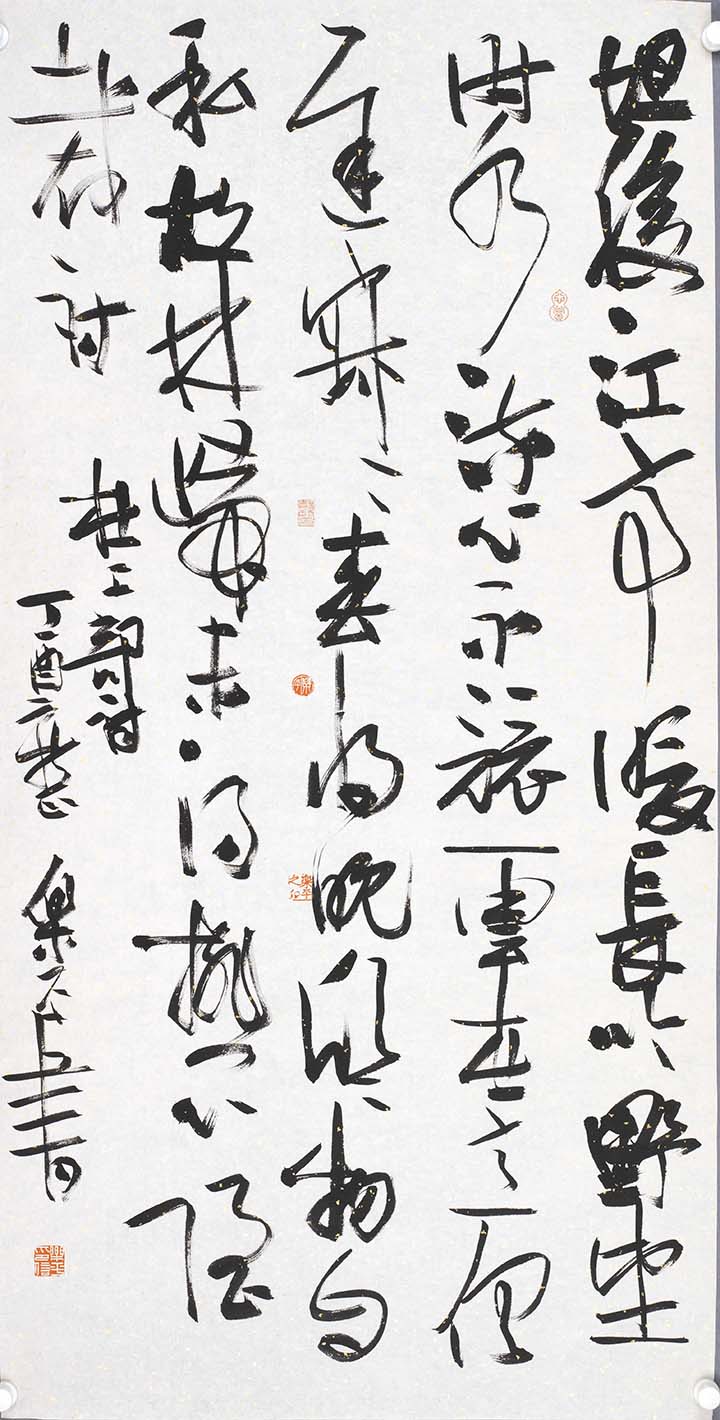 坦腹江亭暖長吟野望
時水流心不競雲在意俱
遲寂々春将晚欣々物自
私故林歸未得排悶強
裁詩
杜工部詩
丁酉 樂平書
樂平印信